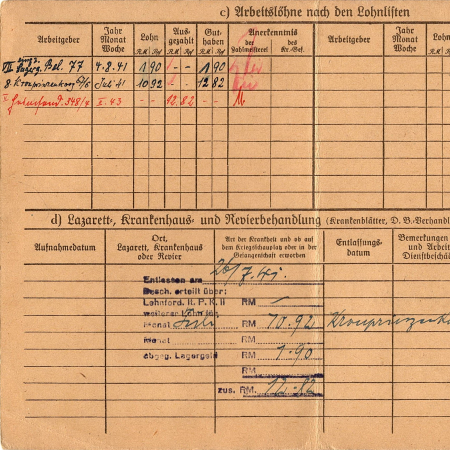 c) Arbeitslöhne nach den Lohnlisten
Arbeitgeber Jahr Monat Woche Lohn Ausgezahlt Guthaben Anerkenntnis Arbeitgeber Jahr Monat Woche Lohn
R.M. Rpf R.M. Rpf R.M. Rpf der Zahlmeisterei des Kr.-Gef. R.M. Rpf
VIII 77 4.8.41 1 90 - - 1 90
8. Juli 41 10 92 12 82
X. 43 - - 12. 82
d) Lazarett-, Krankenhaus- und Revierbehandlung (Krankenblätter, D. B.-Verhandl
Aufnahmedatum Ort, Lazarett, Krankenhaus oder Revier Art der Krankheit und ob auf dem Kriegsschauplatz oder in der Gefangenschaft erworben Entlassungsdatum Bemerkungen und Arbeit Dienstbeschä
Entlassen am 26/7.41.
Besch. erteilt über:
Lohnford. II. P. K. II RM —
weiterer Lohn für
Monat Juli RM 10.92
Monat RM
abzgl. Lagergeld RM 1.90
RM
zus. RM. 12.82